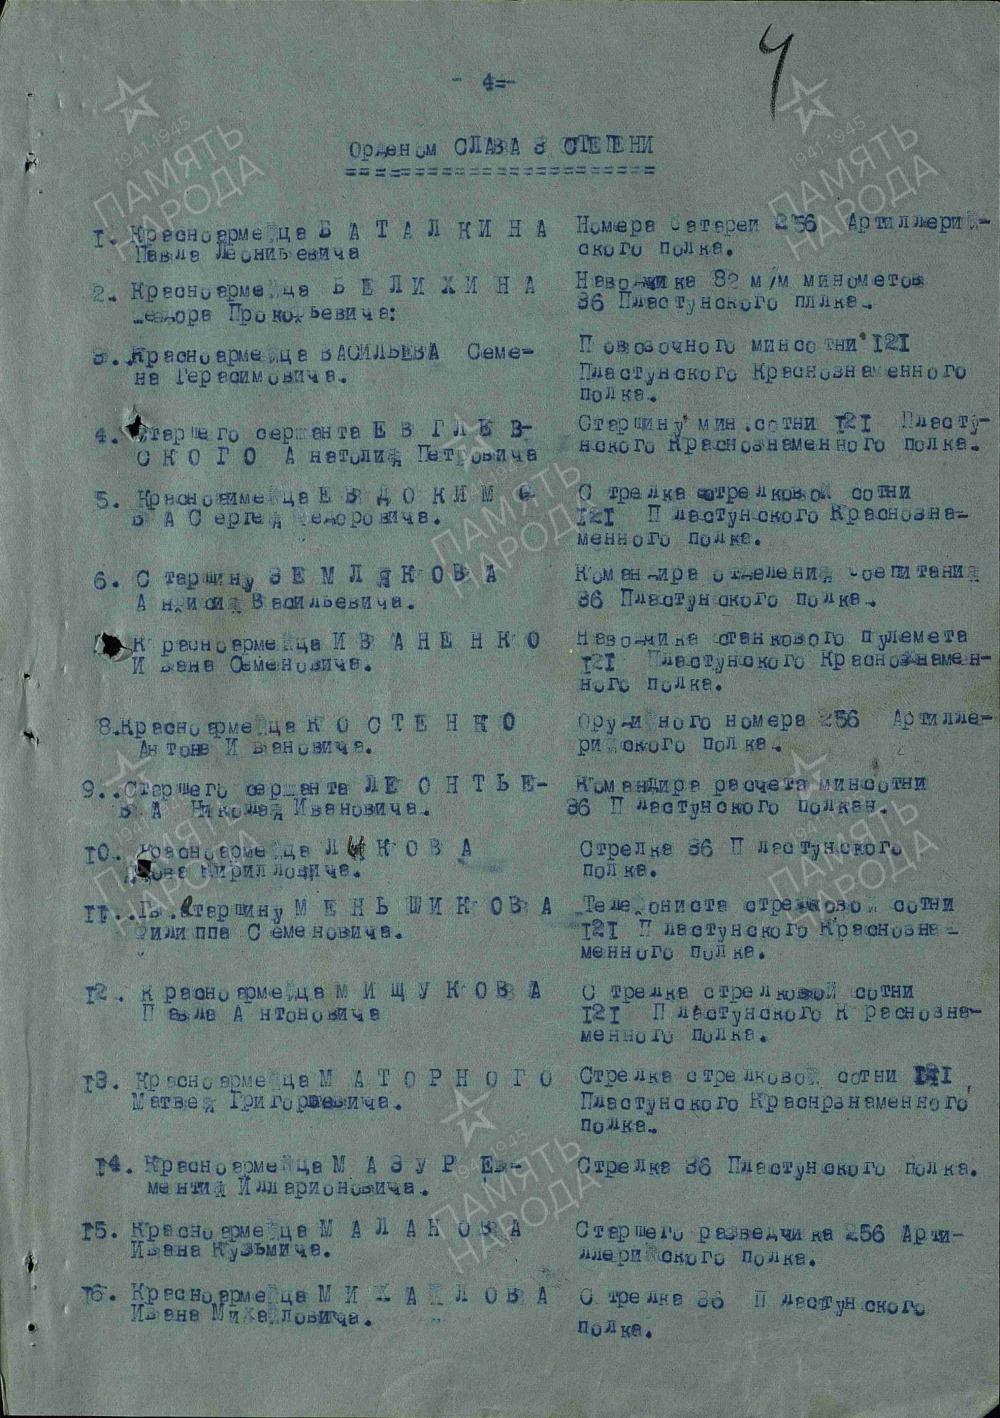 4
- 4=-
Орденом СЛАВА 3 СТЕПЕНИ
1. Красноармейца БАТАЛКИНА Номера батареи 256 Артиллерий-
Павла Леонтьевича ского полка.
2. Красноармейца БЕЛИХИНА Наводчика 82 м/м минометов
Феодора Прокофьевича: 36 Пластунского пллка.
3. Красноармейца ВАСИЛЬЕВА Семе- Повозочного минсотни 121
на Герасимовича. Пластунского Краснознаменного
полка.
4. Старшего сержанта ЕВГЛЕВ- Старшину мин.сотни 121 Пласту-
СКОГО Анатолия Петровича нского Краснознаменного полка.
5. Красноаимейца ЕВДОКИМО Стрелка стрелковой сотни
ВА Сергея Федоровича. 121 Пластунского Краснозна-
менного полка.
6. Старшину ЗЕМЛЯКОВА Командира отделения
Васильевича. 36 Пластунского полка.
Красноармейца ИВАНЕНКО Наводчика станкового пулемета
Ивана Семеновича. 121 Пластунского Краснознамен-
ного полка.
8. Красноармейца КОСТЕНКО Орудийного номера 256 Артилле-
Антона Ивановича. рийского полка.
9. Старшего сержанта ЛЕОНТЬЕ- Командира расчета минсотни
ВА Николая Ивановича. 36 Пластунского полкан.
10. Красноармейца ЛЫКОВА Стрелка 36 Пластунского
Кирилловича. полка.
11. Гв. старшину МЕНЬШИКОВА Телефониста стрелковой сотни
Филиппа Семеновича. 121 Пластунского Краснозна-
менного полка.
12. Красноармейца МИЩУКОВА Стрелка стрелковой сотни
Павла Антоновича 121 Пластунского Краснозна-
менного полка.
13. Красноармейца МАТОРНОГО Стрелка стрелковой сотни 121
Матвея Григорьевича. Пластунского Краснрзнаменного
полка.
14. Красноармейца МАЗУР Ев- Стрелка 36 Пластунского полка.
ментия Илларионовича.
15. Красноармейца МАЛАНОВА Старшего разведчика 256 Арти-
Ивана Кузьмича. ллерийского полка.
16. Красноармейца МИХАЙЛОВА Стрелка 36 Пластунского
Ивана Михайловича. полка.
1941-1945
ПАМЯТЬ
НАРОДА